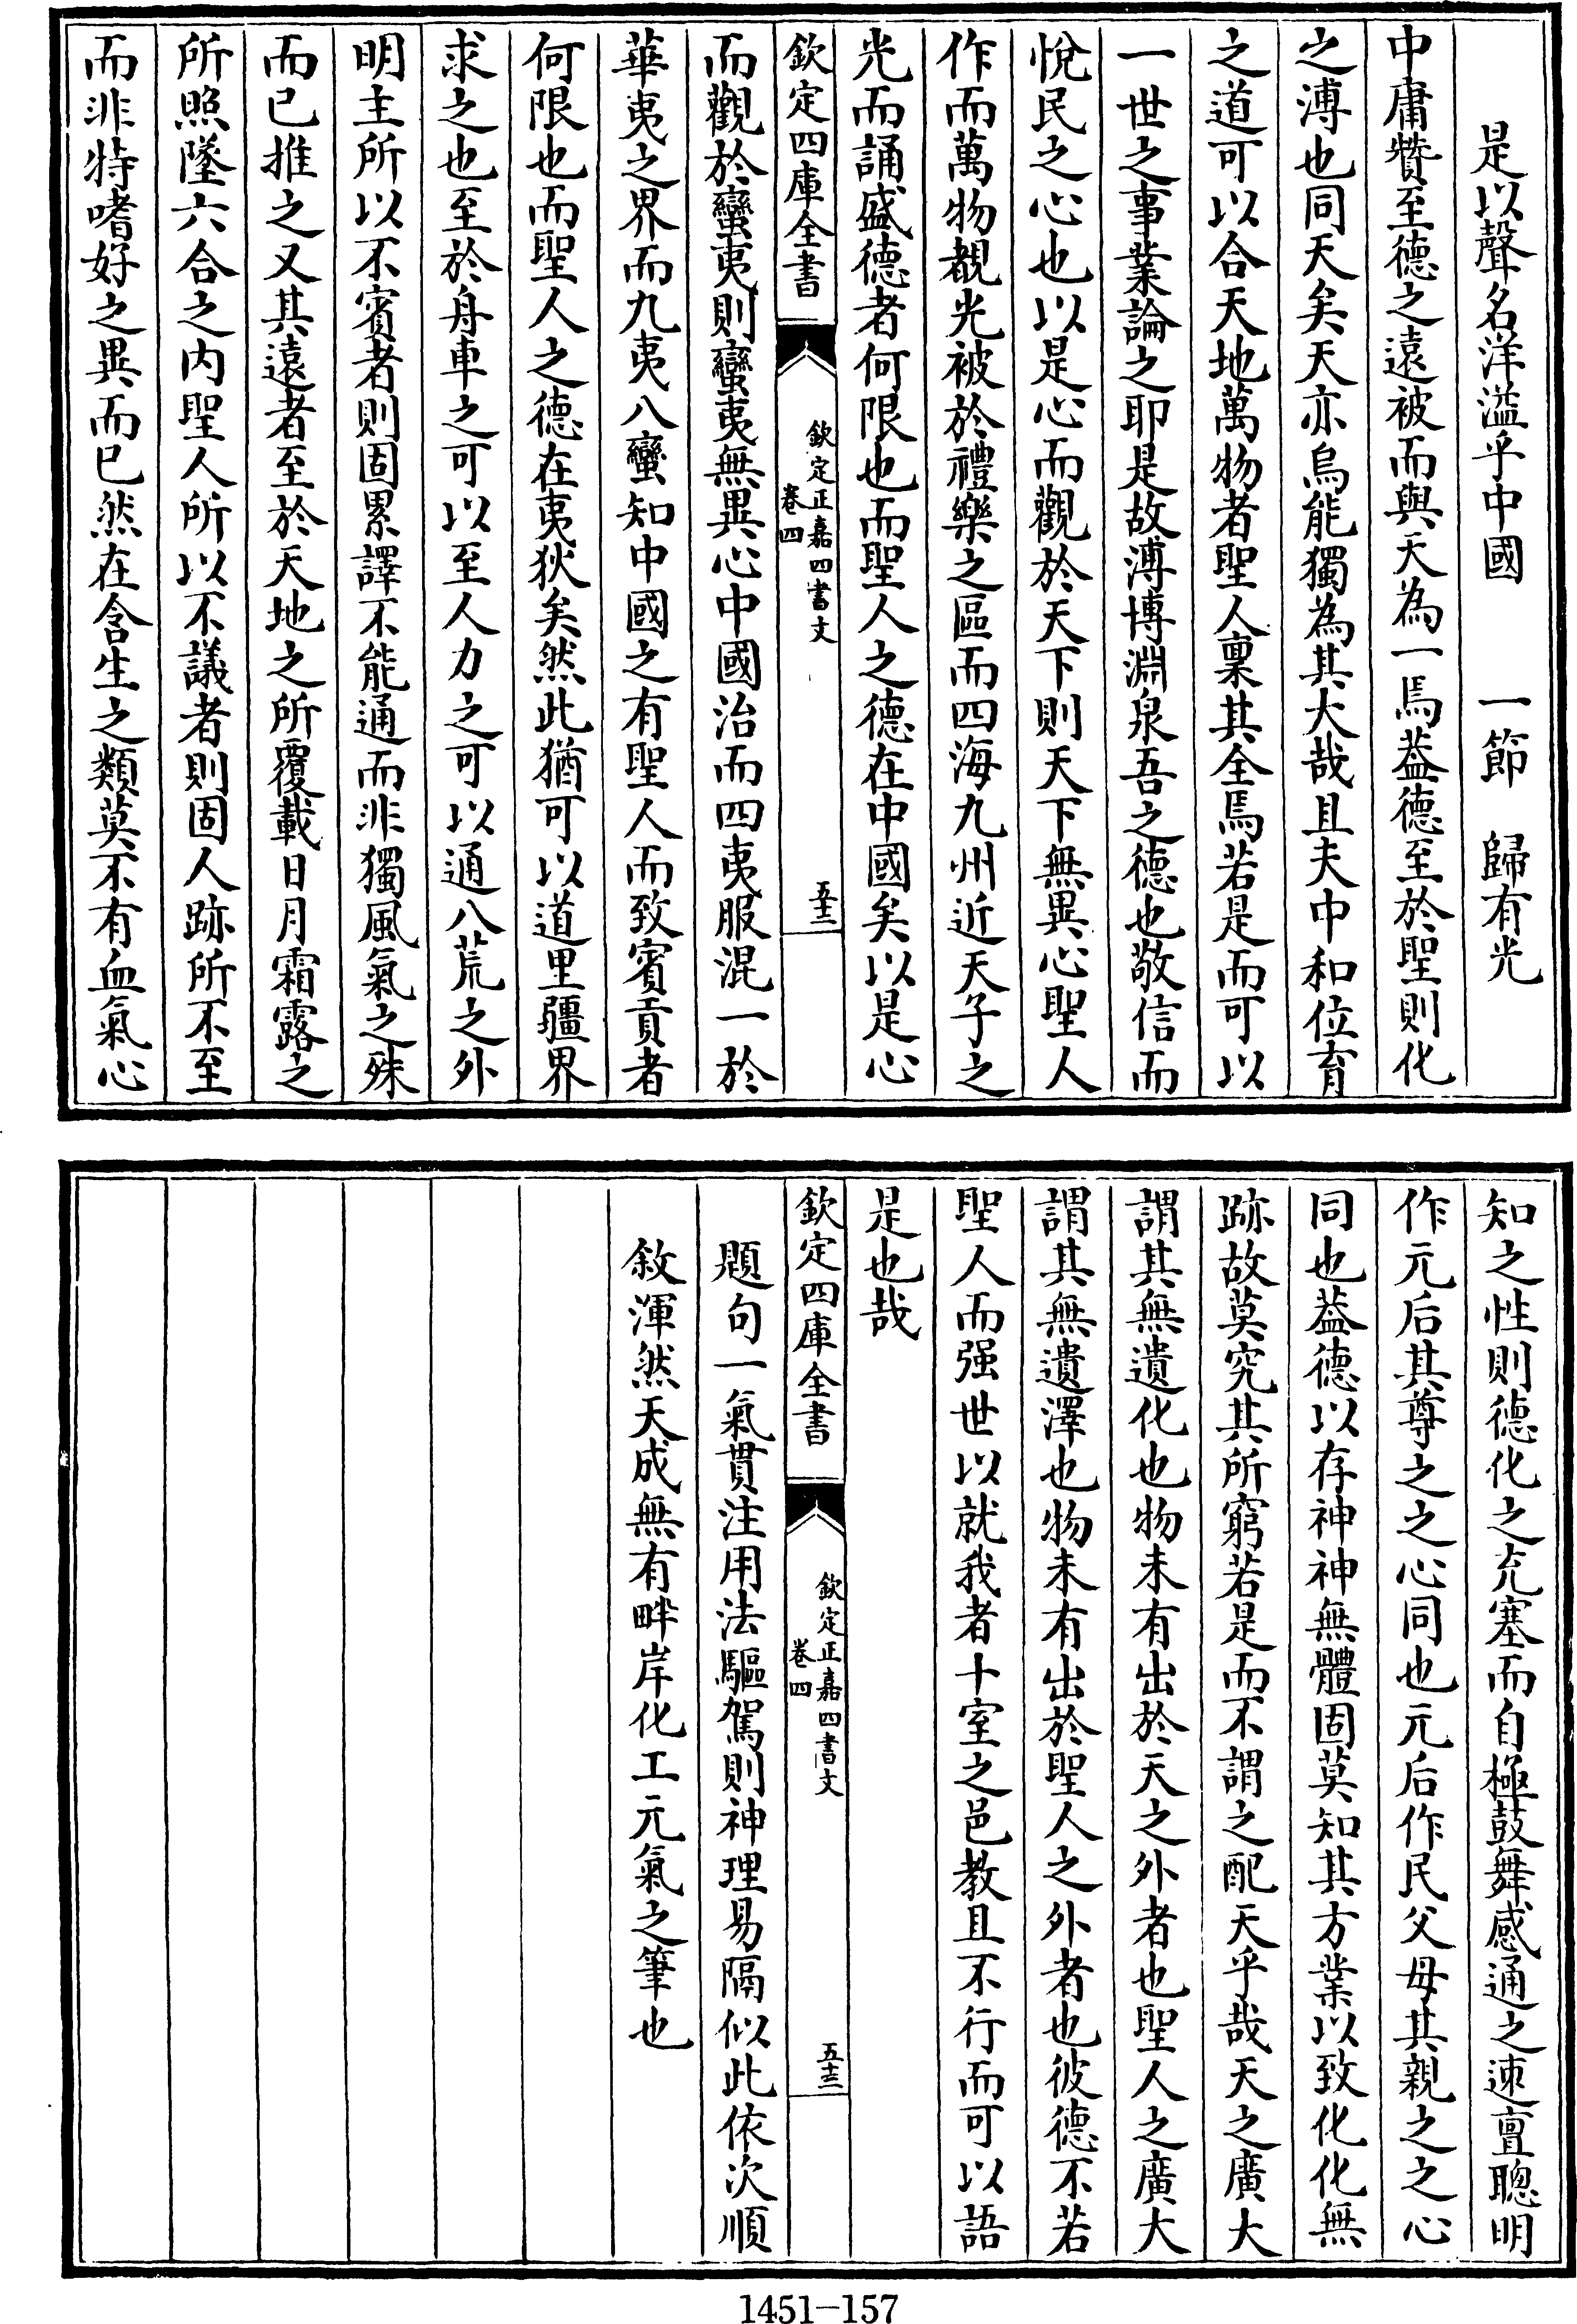 是以聲名洋溢乎中國 一節 歸有光
中庸贊至德之遠被而與天為一焉葢德至於聖則化
之溥也同天矣天亦烏能獨為其大哉且夫中和位育
之道可以合天地萬物者聖人禀其全焉若是而可以
一世之事業論之耶是故溥博淵泉吾之德也敬信而
悅民之心也以是心而觀於天下則天下無異心聖人
作而萬物覩光被於禮樂之區而四海九州近天子之
光而誦盛德者何限也而聖人之德在中國矣以是心
欽定四庫全書 欽定正嘉四書文 卷四 五十三
而觀於蠻夷則蠻夷無異心中國治而四夷服混一於
華夷之界而九夷八蠻知中國之有聖人而致賓貢者
何限也而聖人之德在夷狄矣然此猶可以道里疆界
求之也至於舟車之可以至人力之可以通八荒之外
明主所以不賓者則固累譯不能通而非獨風氣之殊
而已推之又其遠者至於天地之所覆載日月霜露之
所照墜六合之内聖人所以不議者則固人跡所不至
而非特嗜好之異而已然在含生之類莫不有血氣心
知之性則德化之充塞而自極鼓舞感通之速亶聰明
作元后其尊之之心同也元后作民父母其親之之心
同也葢德以存神神無體固莫知其方業以致化化無
跡故莫究其所窮若是而不謂之配天乎哉天之廣大
謂其無遺化也物未有出於天之外者也聖人之廣大
謂其無遺澤也物未有出於聖人之外者也彼德不若
聖人而强世以就我者十室之邑教且不行而可以語
是也哉
欽定四庫全書 欽定正嘉四書文 卷四 五十三
題句一氣貫注用法驅駕則神理易隔似此依次順
敘渾然天成無有畔岸化工元氣之筆也
1451-157